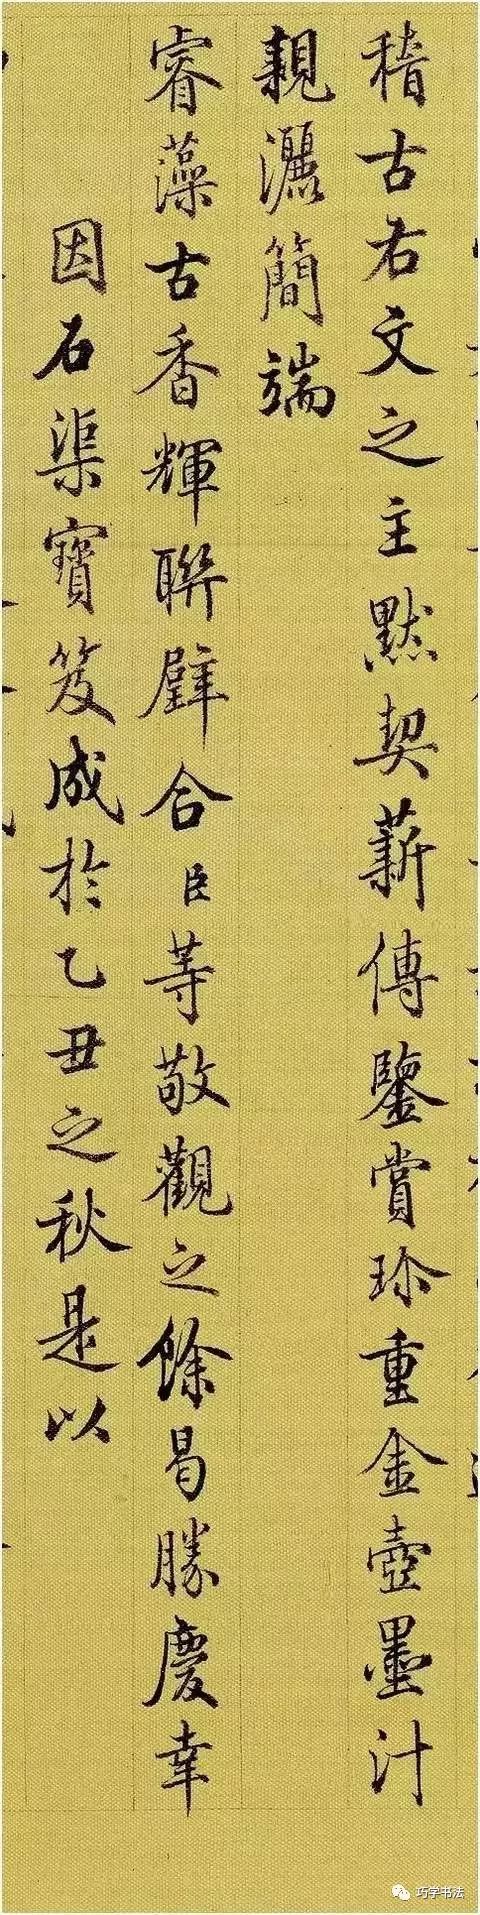 稽古右文之主默契薪傳鑒賞珍重金壺墨汁
親灑簡端
睿藻古香輝聯璧合臣等敬觀之餘曷勝慶幸
因石渠寶笈成於乙丑之秋是以
巧字书法